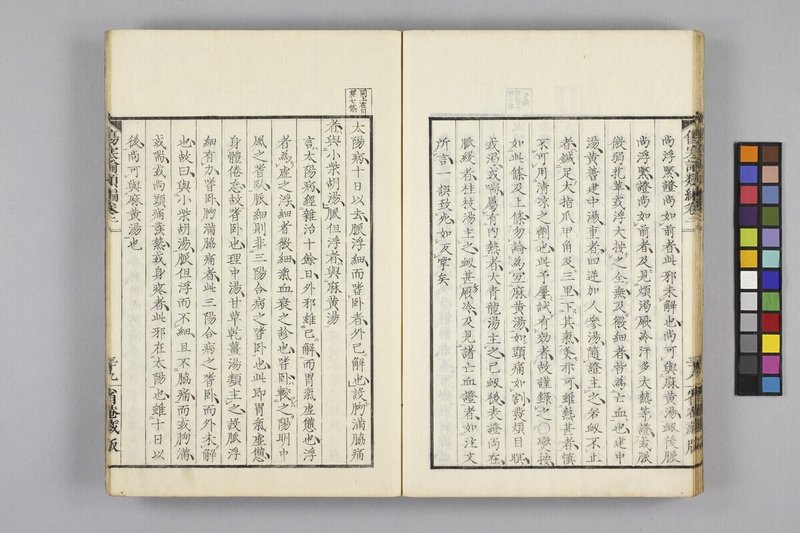 尚浮緊證尚如前者此邪未解也尚可與麻黃湯衂後脈
尚浮緊證尚如前者及見煩渴厥冷汗多大熱等證或脈
微弱芤革或浮大按之全無及微細者皆為亡血也建中
湯黃耆建中湯重者四逆加人參湯隨證主之若衂不止
者鍼足大指爪甲角及三里下其氣亦可雖熱甚者慎
不可用清涼之劑也此予屢試有効者故謹錄之〇櫟按
如此條及上條勿論為宜麻黃湯如頭痛如割發煩目瞑
或渴或喘屬有內熱者大青龍湯主之已衂後表證尚在
脈緩者桂枝湯主之衂甚厥冷及見諸亡血證者如注文
所言一誤致死如反掌矣
太陽病十日以去脈浮細而嗜臥者外已解也設胸滿脇痛
者與小柴胡湯脈但浮者與麻黃湯
言太陽病經雜治十餘日外邪雖已解而胃氣虛憊也浮
者為虛之浮細者微細氣血衰之診也嗜臥較之陽明中
風之嗜臥脈細則非三陽合病之嗜臥也此即胃氣虛憊
身體倦怠故嗜臥也理中湯甘草乾薑湯類主之設脈浮
細有力嗜臥胸滿脇痛者此三陽合病之嗜臥而外未解
也故曰與小柴胡湯脈但浮而不細且不脇痛而或胸滿
或喘或尚頭痛發熱或身疼者此邪在太陽也雖十日以
後尚可與麻黃湯也
傷寒論類編卷二
三十九
省菴藏版